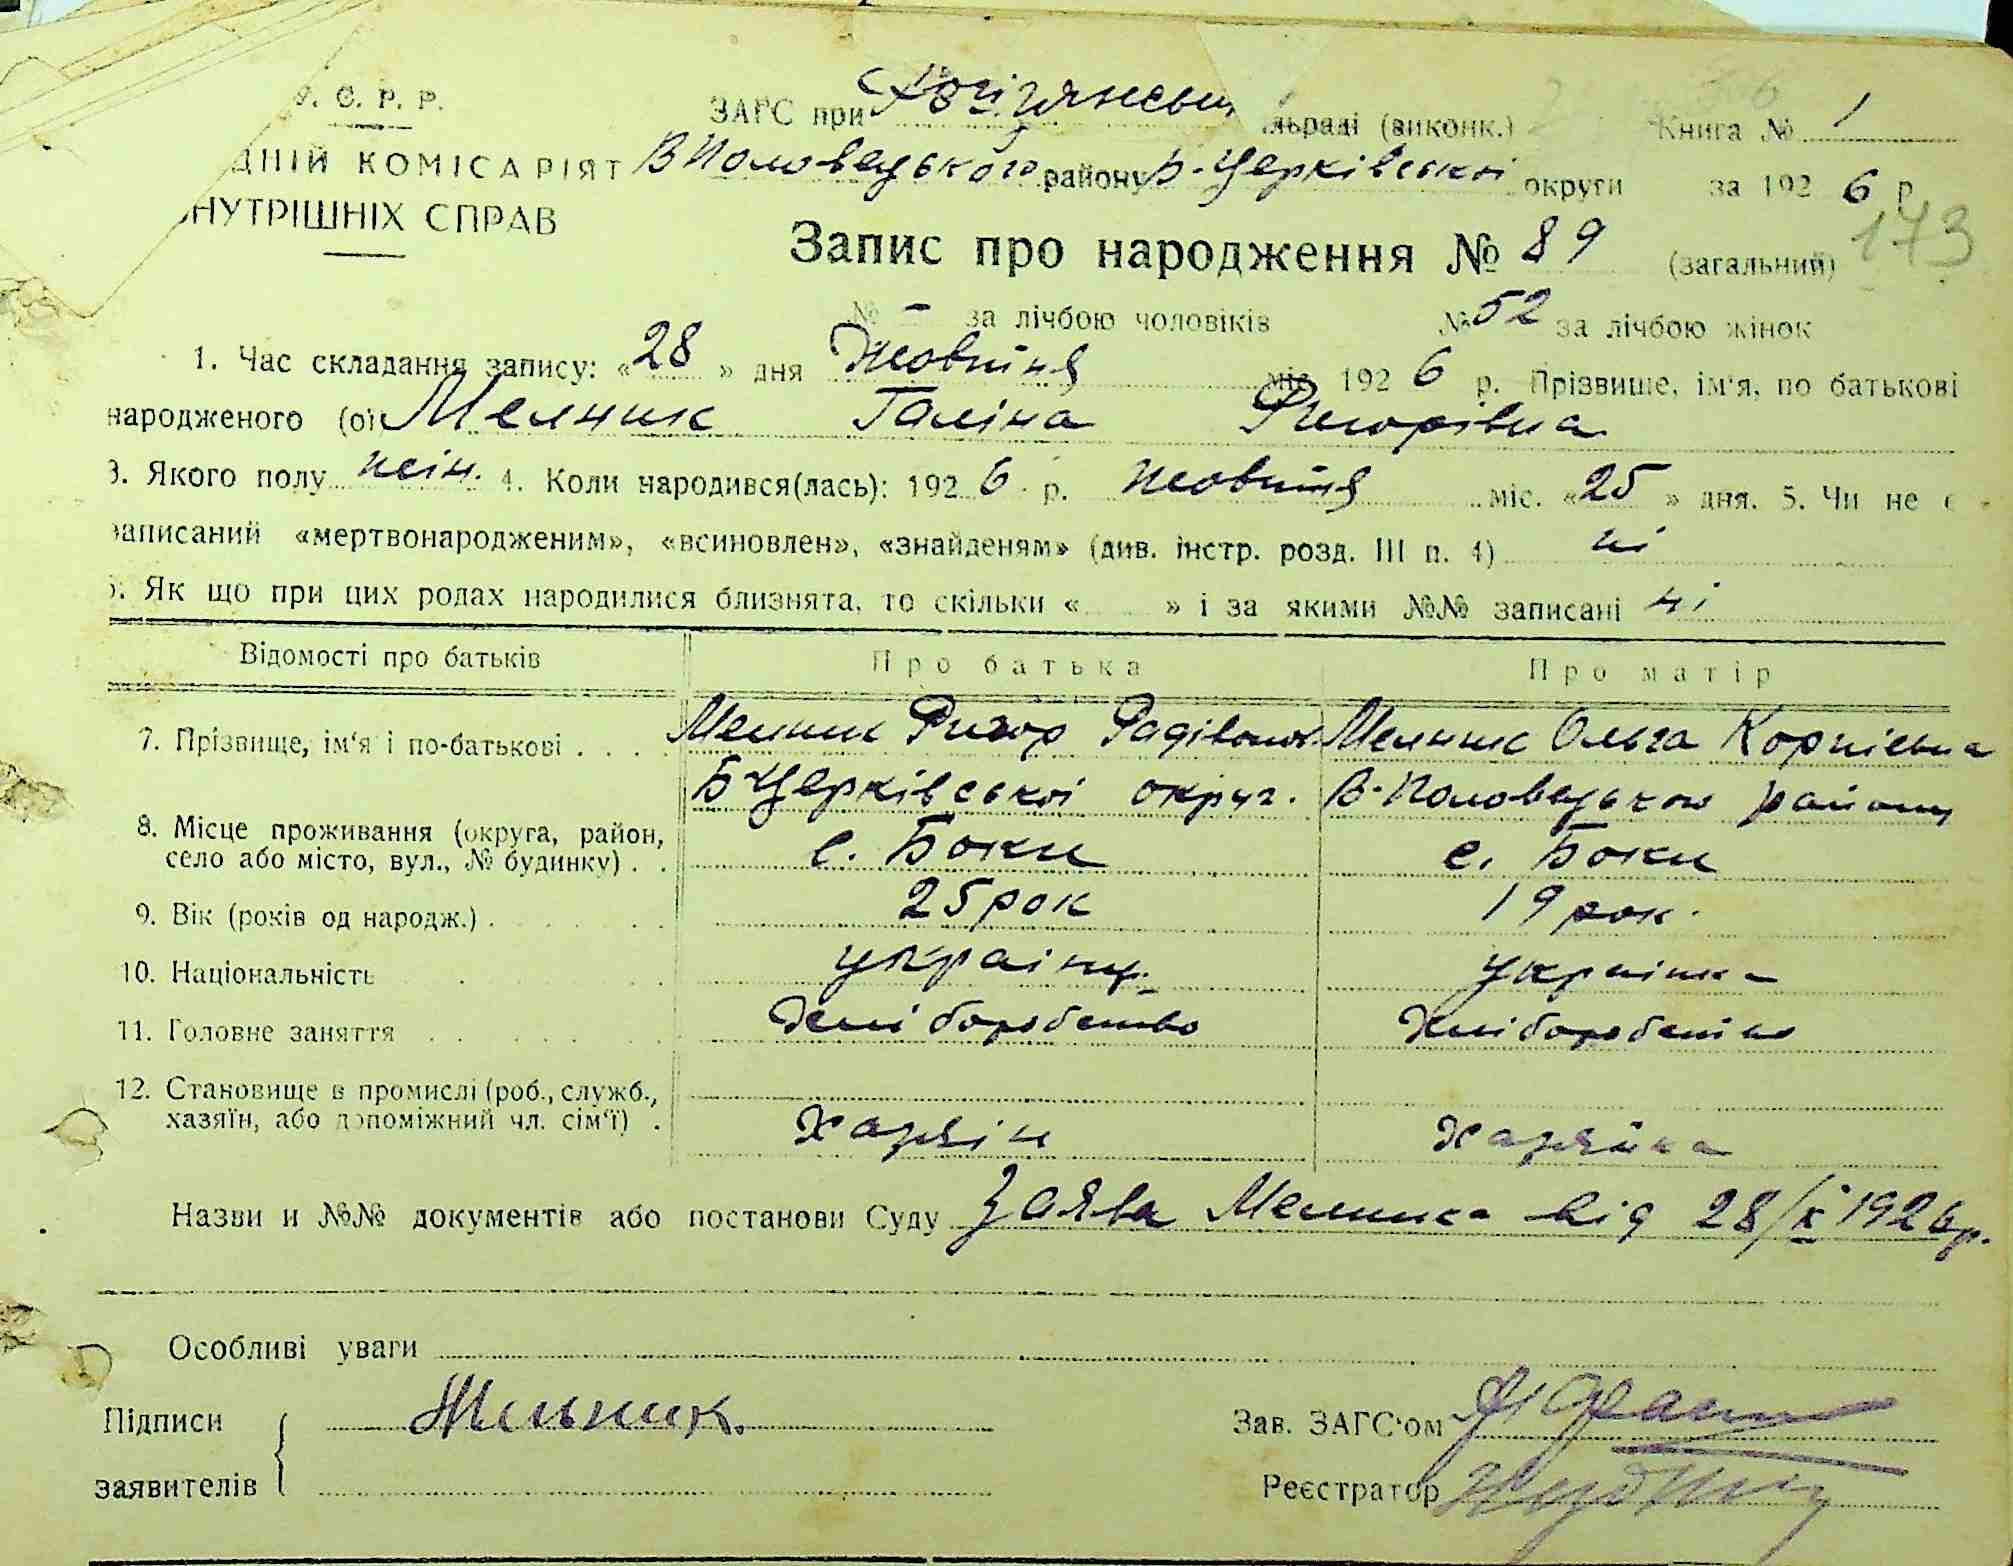 У. С. Р. Р.
ЗАГС при льраді (виконк.) Книга № 1
ДНІЙ КОМІСАРІЯТ В Половецького району Б-Церківської округи за 1926 р.
НУТРІШНІХ СПРАВ
173
Запис про народження № 89 (загальний)
№ - за лічбою чоловіків № 52 за лічбою жінок
1. Час складання запису: «28» дня Жовтня міс. 1926 р. Прізвище, ім'я, по батькові
народженого (ої Мелник Галіна Григорівна
3. Якого полу жін. 4. Коли народився(лась): 1926 р. жовтня міс. «25» дня. 5. Чи не є
записаний «мертвонародженим», «всиновлен», «знайденям» (див. інстр. розд. III п. 4) ні
6. Як що при цих родах народилися близнята, то скільки « » і за якими №№ записані ні
Відомості про батьків Про батька Про матір
7. Прізвище, ім'я і по-батькові . . . . Мелник Григор Радівонов. Мелник Ольга Корніевна
Б-Церківської округ. В-Половецького району
8. Місце проживання (округа, район,
село або місто, вул., № будинку) . . с. Боки с. Боки
9. Вік (років од народж.) . 25 рок 19 рок.
10. Національність українц. українка
11. Головне заняття Хліборобство Хліборобство
12. Становище в промислі (роб., служб.,
хазяїн, або допоміжний чл. сім'ї) . Хазяін Хазяйка
Назви и №№ документів або постанови Суду Заява Мелника від 28/X 1926р.
Особливі уваги
Підписи Мельник.
Зав. ЗАГС'ом
заявителів
Реєстратор